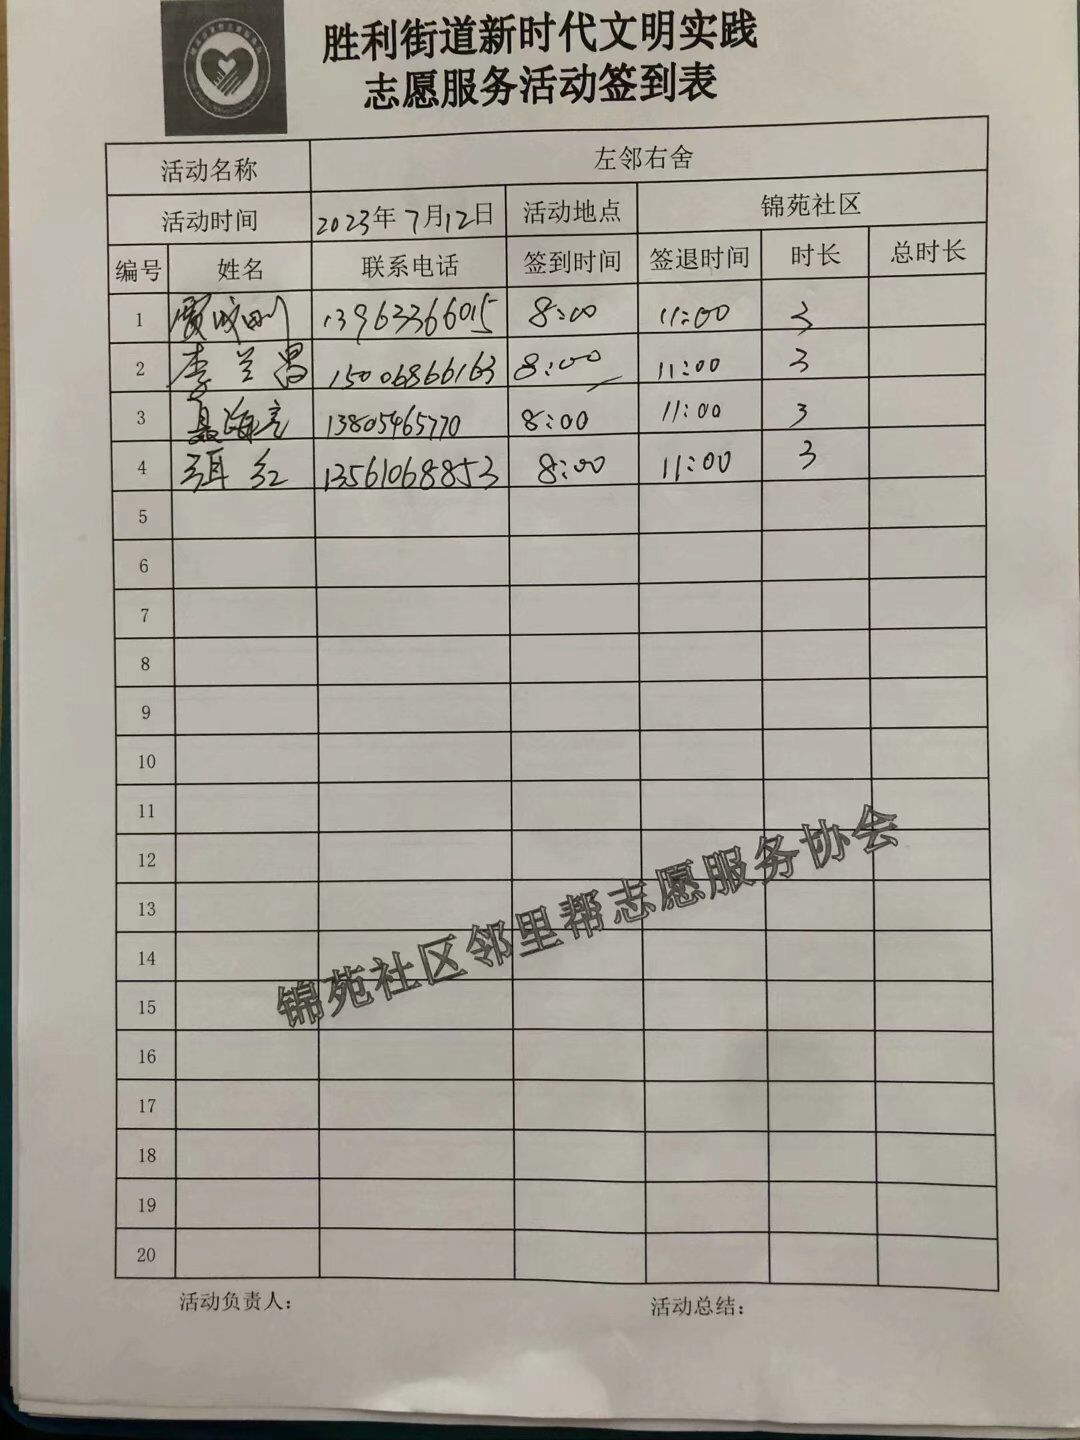 胜利街道新时代文明实践
志愿服务活动签到表
活动名称 左邻右舍
活动时间 2023年7月12日 活动地点 锦苑社区
编号 姓名 联系电话 签到时间 签退时间 时长 总时长
1 13963366015 8:00 11:00 3
2 李兰昌 15006866163 8:00 11:00 3
3 聂海亮 13805465770 8:00 11:00 3
4 红 13561068853 8:00 11:00 3
5
6
7
8
9
10
11
12
13
14
15
16
17
18
19
20
锦苑社区邻里帮志愿服务协会
活动负责人: 活动总结: